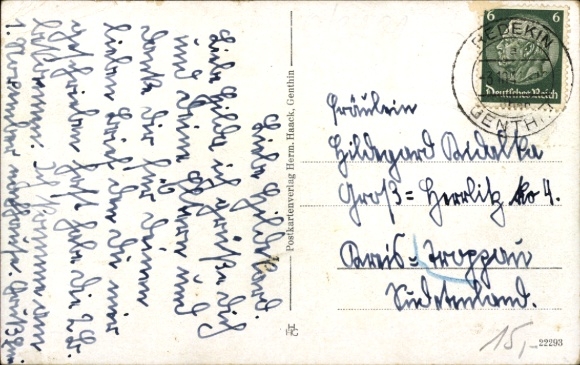 Liebe Hildegard.
Liebe Hilda ich grüße dich
und deine Eltern und
danke dir für deinen
lieben Brief den du mir
geschrieben hast habe die 29.
bekommen. Ich komme am
1.
Postkartenverlag Herm. Haack, Genthin
6 6
Deutsches Reich
REDEKIN
GENTHIN
Fräulein
Hildegard
Groß=Herrlitz No 4.
Kreis=Troppau
Sudetenland.
15,-
22293